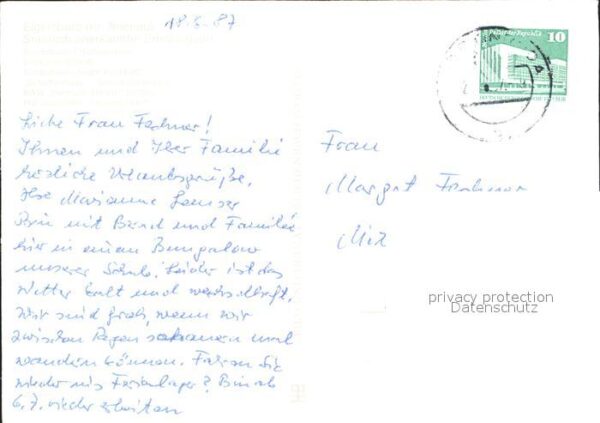 18.6.87
10
Liebe Frau Fechner!
Ihnen und Ihrer Familie
herzliche Urlaubsgrüße,
Ihre Marianne
Bin mit Bernd und Familie
hier in einem Bungalow
unserer Schule. Leider ist das
Wetter kalt und wechselhaft.
Wir sind froh, wenn wir
zwischen Regen mal
wandern können. Fahren Sie
wieder ins Ferienlager? Bin ab
6.7. wieder arbeiten
Frau
Margot Fechner
privacy protection
Datenschutz